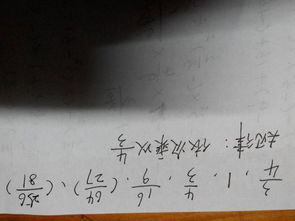 3/4, 1, 4/3, 16/9, (64/27), (256/81)
规律：依次乘以 4/3